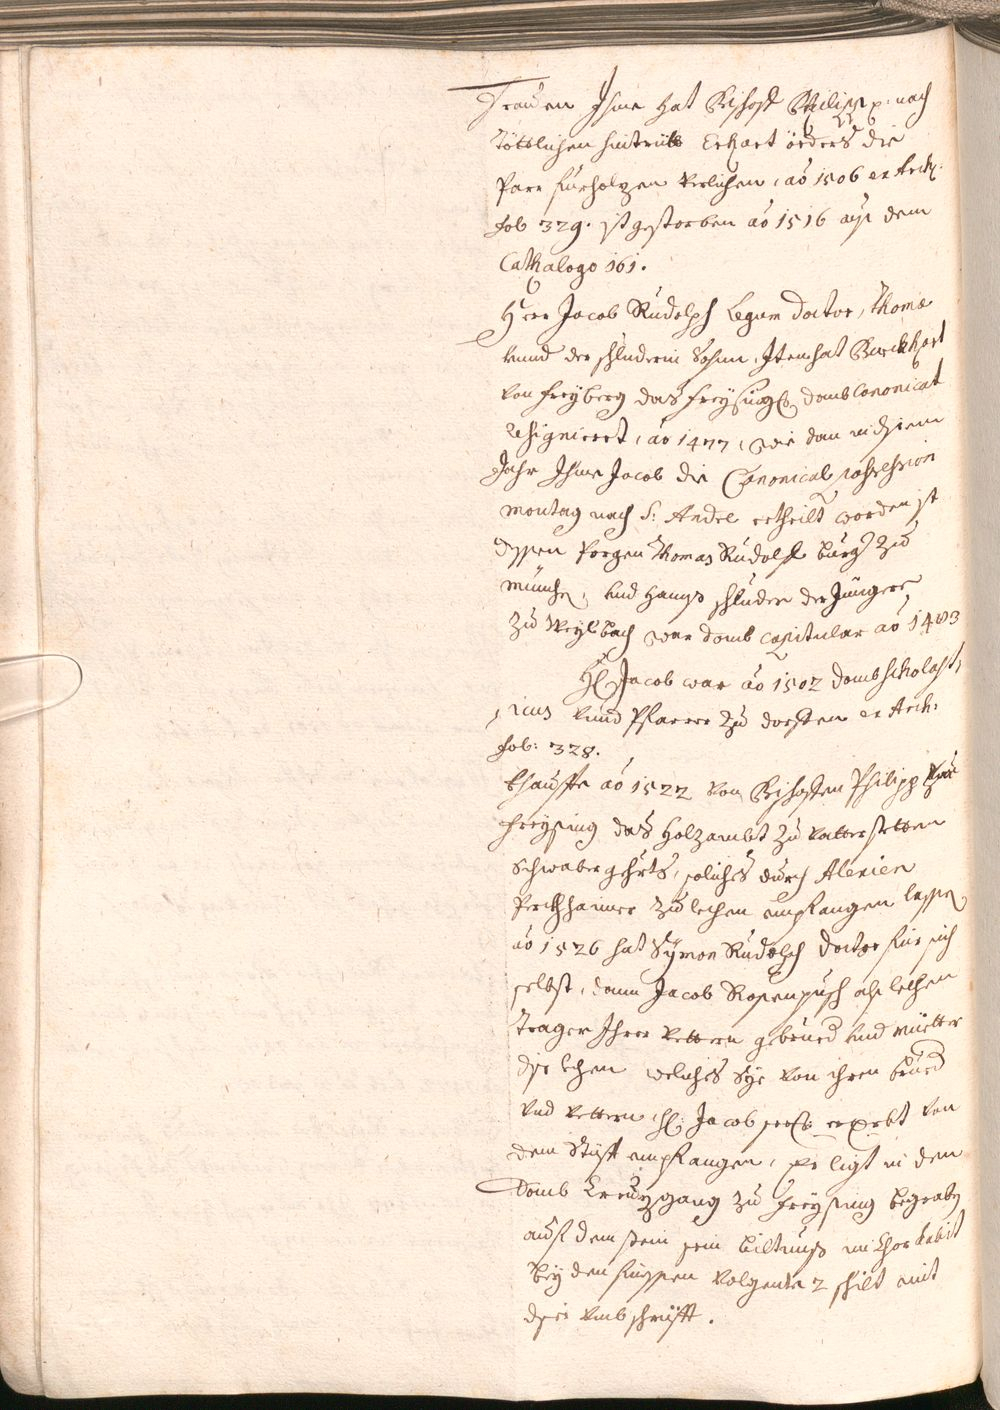 Frauen Ihme hat Bischoff Philipp p. nach
Töttlichen hintritt Erhart örders die
Farr Furholzen verlichen, ao 1506 ex Arch:
fol: 329. ist gestorben ao 1516 auß dem
Cathalogo 161.
Herr Jacob Rudolph Legum doctor, Thome
vnnd der schluderin Sohnn, Item hat Burckhart
von Freyberg das Freysing domb Canonicat
resigniert, ao 1477, wie dan in disem
Jahr Ihme Jacob die Canonical possession
montag nach S: Andre ertheilt worden ist
dessen Porgen Thomas Rudolf burg zu
münchen, vnd Hanns schluder der Jünger
zu Weylbach war domb capitular ao 1483
H: Jacob war ao 1502 dombscholast,
,icus vnnd Pfarrer zu dorffen ex Arch:
fol: 328.
khauffte ao 1522 von Bischoffen Philipp zu
Freysing das holzambt zu vatterstetten
Schwaber ghrts, soliches durch Alexien
Perkhhamer zu lechen empfangen lassen
ao 1526 hat Symon Rudolph doctor für sich
selbst, dann Jacob Rosenpusch als lechen
trager Ihrer vettern gebrued vnd muetter
dise lechen welches Sye von ihren brued
vnd vettern, H: Jacob seel: ererbt von
dem Stüfft empfangen, er ligt in dem
Domb Creuzgang zu Freysing begraben
auf dem stein sein biltnus im Chor habit
bey den fuessen volgente 2 schilt mit
diser vmbschrüfft.